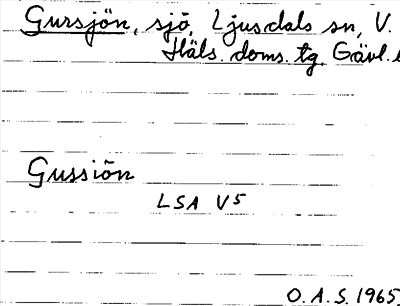 Gursjön, sjö, Ljusdals sn, V.
Häls. doms. tg. Gävl.
Gussiön
LSA V5
O.A.S. 1965